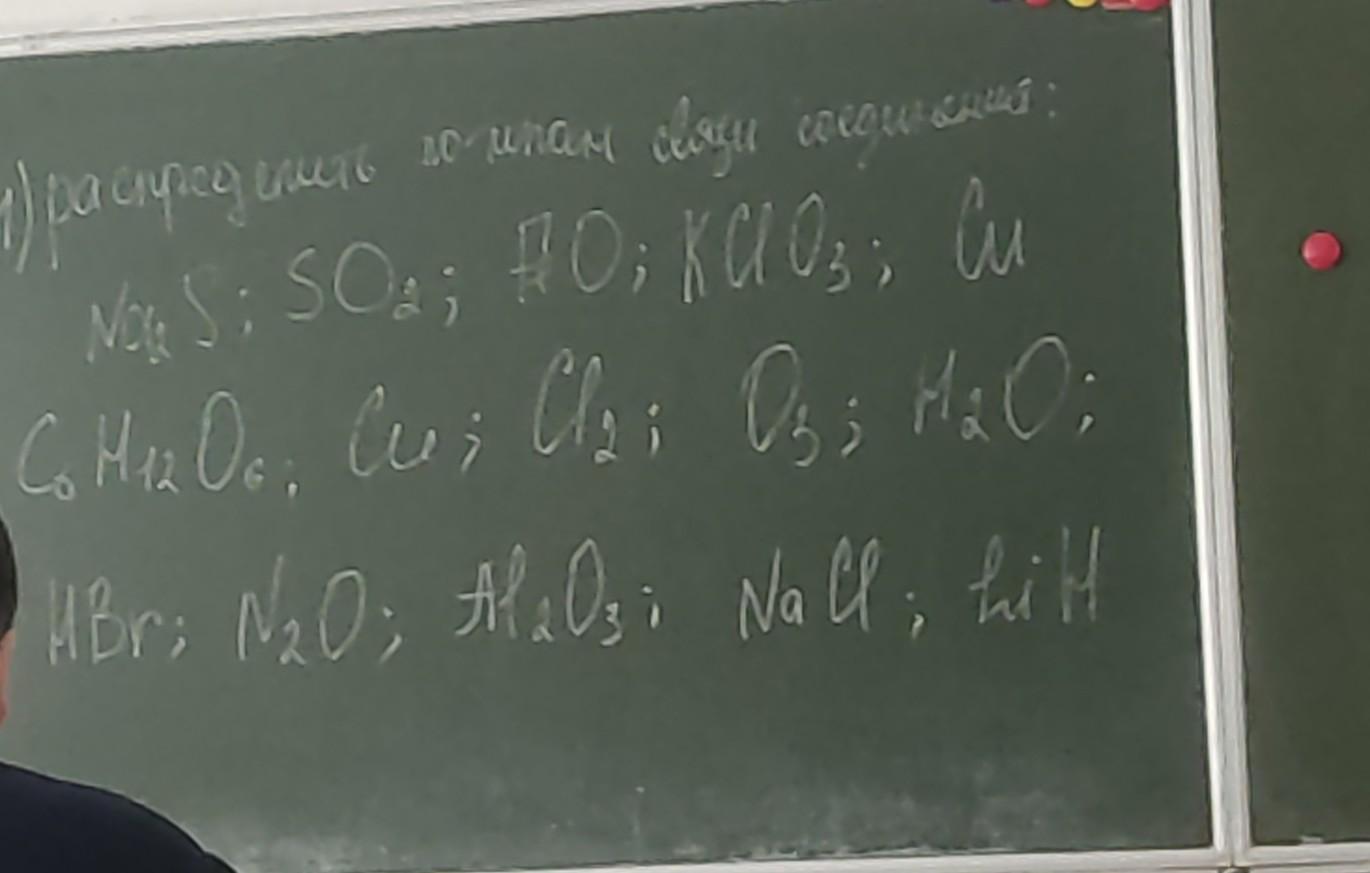 1) распределить по типам связи соединения:
S; SO₂; O; KClO₃; Cu
C₆H₁₂O₆; Cu; Cl₂; O₃; H₂O;
HBr; N₂O; Al₂O₃; NaCl; LiH